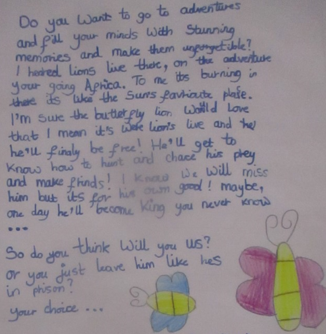 Do you want to go to adventures
and fill your minds with stunning
memories and make them unforgetible?
I heared lions live there, on the adventure
your going Africa. To me its burning in
there its like the suns favhioute plase.
I'm sure the butterfly lion would love
that I mean it's were lions live and he
he'll finaly be free! He'll get to
know how to hunt and chace his prey
and make frinds! I know we will miss
him but its for his own good! maybe,
one day he'll become king you never know
...
So do you think will you us?
or you just leave him like hes
in prison?
your choice ...